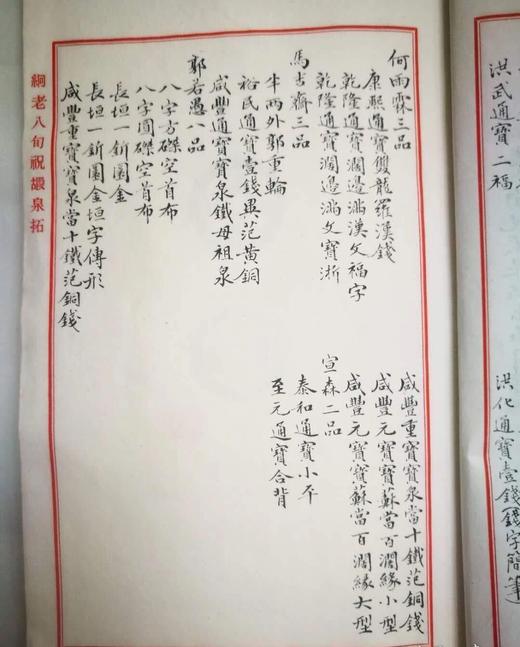 洪武通寶二福
洪化通寶壹錢（錢字簡筆
何雨霖三品
康熙通寶雙龍羅漢錢
乾隆通寶濶邊滿漢文福字
乾隆通寶濶邊滿文寶浙
馬吉齋三品
半兩外郭重輪
裕民通寶壹錢異范黄銅
咸豐通寶寶泉鐵母祖泉
郭若愚八品
八字方磔空首布
八字圓磔空首布
長垣一釿圜金
長垣一釿圜金垣字傳形
咸豐重寶寶泉當十鐵范銅錢
咸豐重寶寶泉當十鐵范銅錢
咸豐元寶寶蘇當百濶緣小型
咸豐元寶寶蘇當百濶緣大型
宣森二品
泰和通寶小平
至元通寶合背
絅老八旬祝嘏泉拓